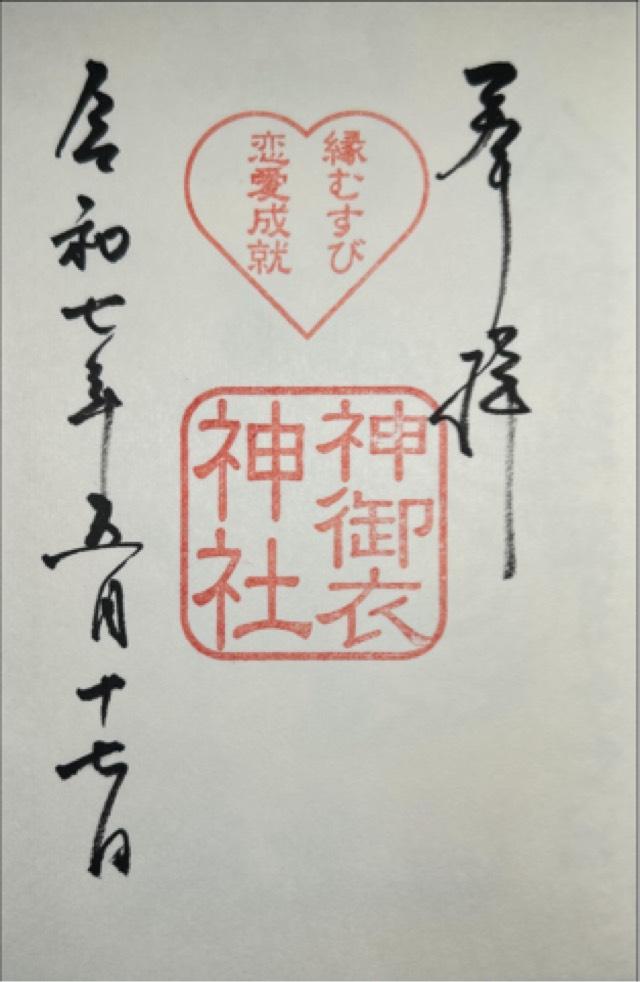 奉拝
縁むすび
恋愛成就
神御衣
神社
令和七年五月十七日